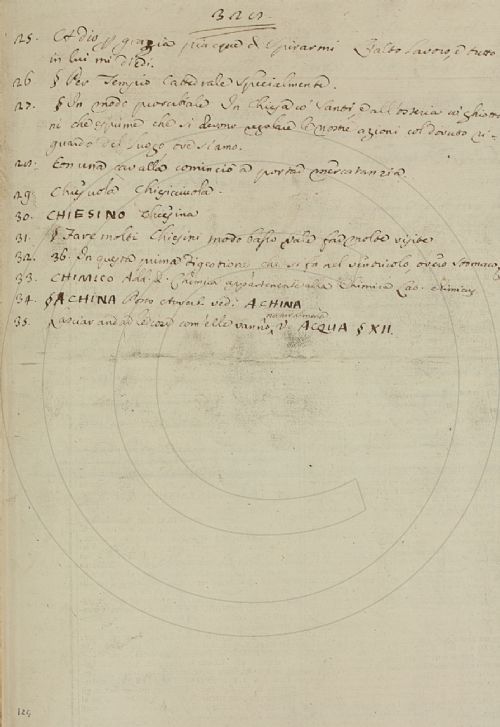 25. Ch a Dio p grazia piacque di spirarmi L'alto lavoro, e tutto
in lui mi diedi.
26 § Per Tempio Cattedrale specialmente.
27. § In modo proverbiale In Chiesa co' Santi, e all'osteria co' ghiotto
ni che esprime che si devono regolare le nostre azioni col dovuto ri-
guardo del luogo ove siamo.
28. Con una cavalla cominciò a portar mercatanzia.
29. Chiesuola Chiesicciuola.
30. CHIESINO Chiesina
31. § Fare molti Chiesini modo basso vale far molte visite
32. 36. In questa prima digestione che si fa nel ventricolo ovvero stomaco,
33. CHIMICO Add. di Chimica appartenente alla Chimica Lat. chimicus
34. § A CHINA Posto avverb. vedi A CHINA
35. Lasciar andar le cose com' elle vanno naturalmente, V. ACQUA § XII.
129